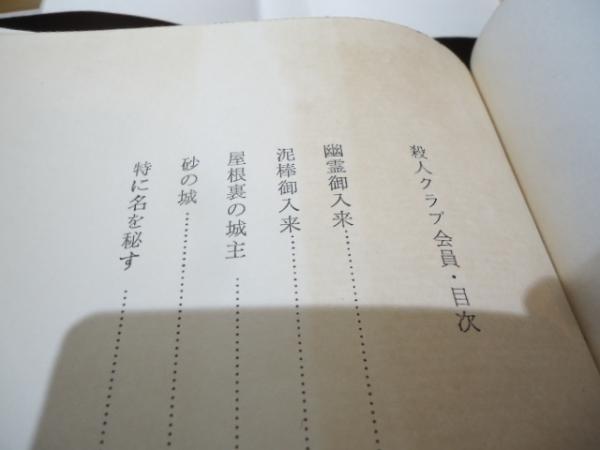 殺人クラブ会員・目次
幽霊御入来……………
泥棒御入来……………
屋根裏の城主……………
砂の城……………
特に名を秘す……………